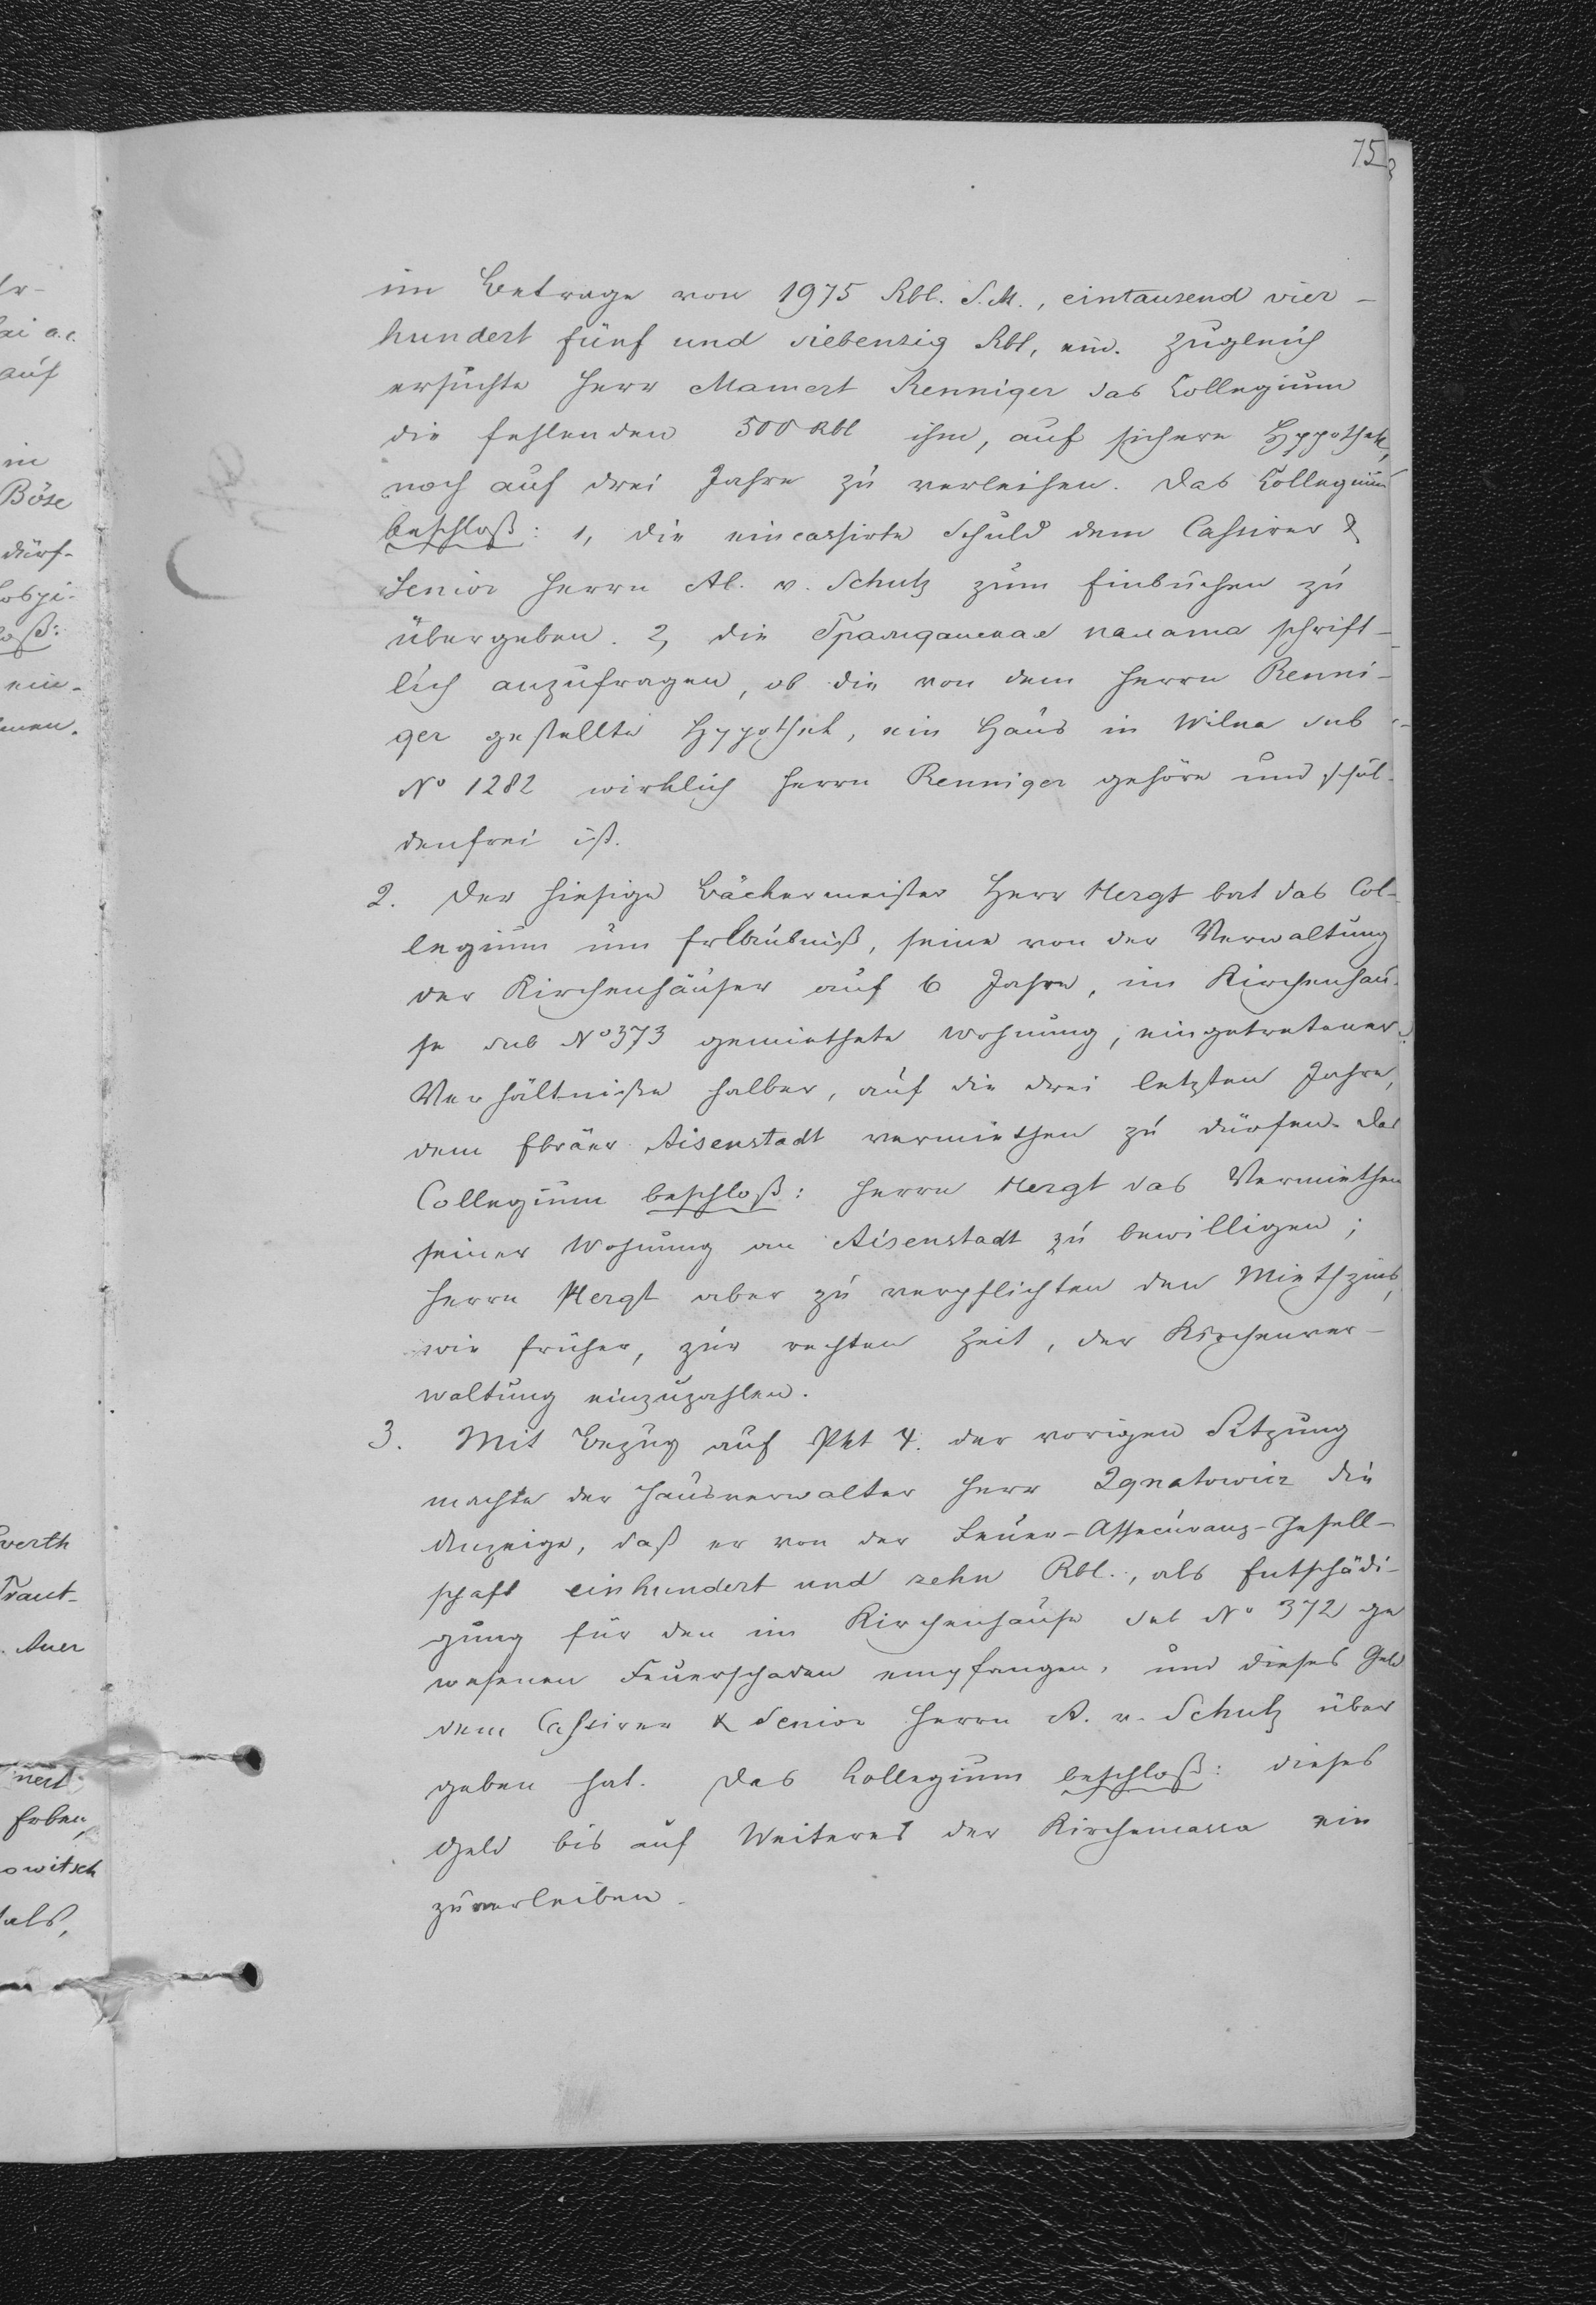 75
im Betrage von 1975 Rbl. S.M., eintausend vier-
hundert fünf und siebenzig Rbl, ein. Zugleich
ersuchte Herr Mamert Renniger das Collegium
die fehlenden 500 Rbl ihm, auf sichere Hypothek,
noch auf drei Jahre zu verleihen. Das Collegium
beschloß: 1, die eincassirte Schuld dem Cassirer &
Senior Herrn Al. v. Schulz zum Einbuchen zu
übergeben. 2, die Гражданская палата schrift-
lich anzufragen, ob die von dem Herrn Renni-
ger gestellte Hypothek, ein Haus in Wilna sub
No 1282 wirklich Herrn Renniger gehöre und schul-
denfrei ist.
2. Der hiesige Bäckermeister Herr Hergt bat das Col-
legium um Erlaubniß, seine von der Verwaltung
der Kirchenhäuser auf 6 Jahre, im Kirchenhau-
se sub No 373 gemiethete Wohnung, eingetretener
Verhältniße halber, auf die drei letzten Jahre,
dem Ebräer Aisenstadt vermiethen zu dürfen. Das
Collegium beschloß: Herrn Hergt das Vermiethen
seiner Wohnung an Aisenstadt zu bewilligen;
Herrn Hergt aber zu verpflichten den Miethzins,
wie früher, zur rechten Zeit, der Kirchenver-
waltung einzuzahlen.
3. Mit Bezug auf Pkt 4. der vorigen Sitzung
machte der Hausverwalter Herr Ignatowicz die
Anzeige, daß er von der Feuer-Assecuranz-Gesell-
schaft einhundert und zehn Rbl., als Entschädi-
gung für den im Kirchenhause sub No 372 ge
wesenen Feuerschaden empfangen, und dieses Geld
dem Cassirer & Senior Herrn A. v. Schulz über
geben hat. Das Collegium beschloß: dieses
Geld bis auf Weiteres der Kirchencassa ein
zuverleiben.